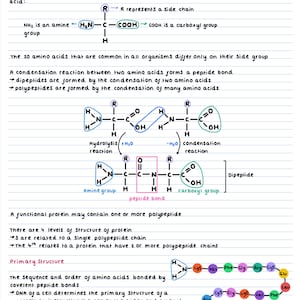 acid:
R → R represents a side chain
NH₂ is an amine group ← H₂N – C – COOH → COOH is a carboxyl group
H
The 20 amino acids that are common in all organisms differ only on their side group
A condensation reaction between two amino acids forms a peptide bond
→ dipeptides are formed by the condensation of two amino acids
→ polypeptides are formed by the condensation of many amino acids.
R R
H N C C O OH H N C C O OH
H H H H
Hydrolysis reaction +H₂O -H₂O condensation reaction
R O R
H N C C N C C O OH
H H H H
amine group carboxyl group
Dipeptide
peptide bond
A functional protein may contain one or more polypeptide
There are 4 levels of structure of protein
→ 3 are related to a single polypeptide chain
→ The 4ᵗʰ related to a protein that have 2 or more polypeptide chains
Primary Structure
The sequence and order of amino acids bonded by covalent peptide bonds
→ DNA of a cell determines the primary structure of a